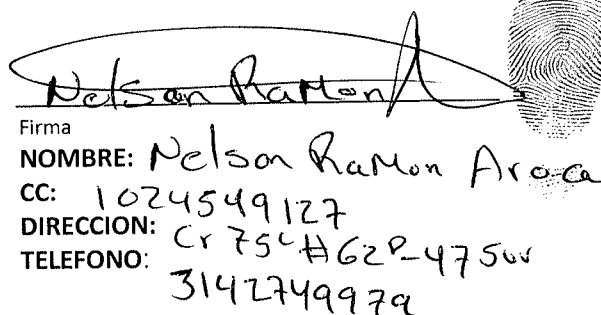 Nelson Ramon A
Firma
NOMBRE: Nelson Ramon Aroca
CC: 1024549127
DIRECCION: Cr 75C #62P-47 Sur
TELEFONO: 3142749979